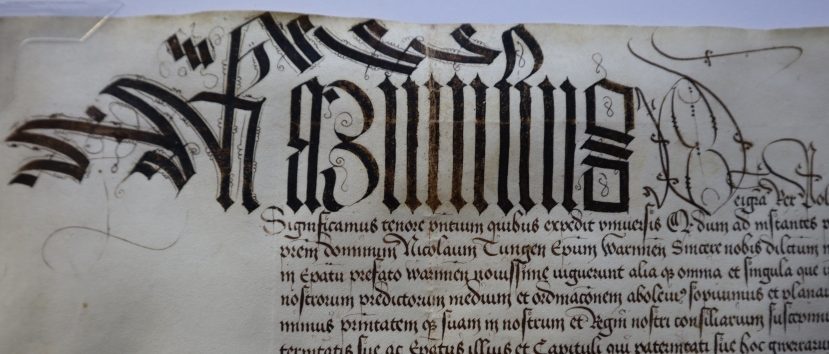 Kazimirus Dei gra Rex Pol
Significamus tenore pntium quibus expedit vniuersis Qdum ad instantes
prem dominum Nicolaum Tungen Epum Warmien Sincere nobis dilctum
in Epatu prefato warmien nouissime viguerunt alia q omnia et singula que
nostrorum predictorum medium et ordinaconem aboleuimus sopiuimus et
minus prnitatem q suam in nostrum et Regni nostri consiliarium
ternitatis sue ac Epatus illius et Capituli qui paternitati sue hoc